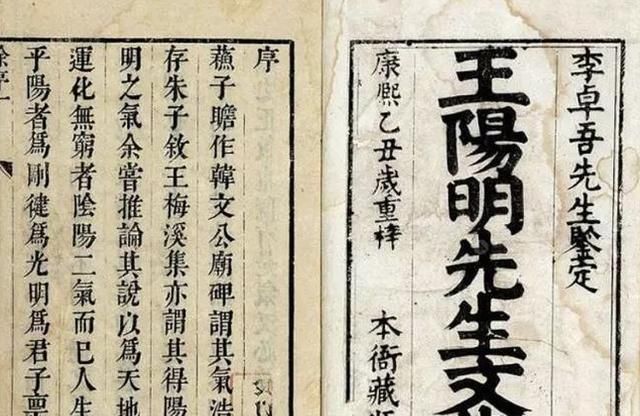 李卓吾先生鑒定
王陽明先生文
康熙乙丑歲重梓
本衙藏
序
蘓子瞻作韓文公廟碑謂其氣浩
存朱子敘王梅溪集亦謂其得陽
明之氣余嘗推論其說以為天地
運化無窮者陰陽二氣而已人生
乎陽者為剛健為光明為君子